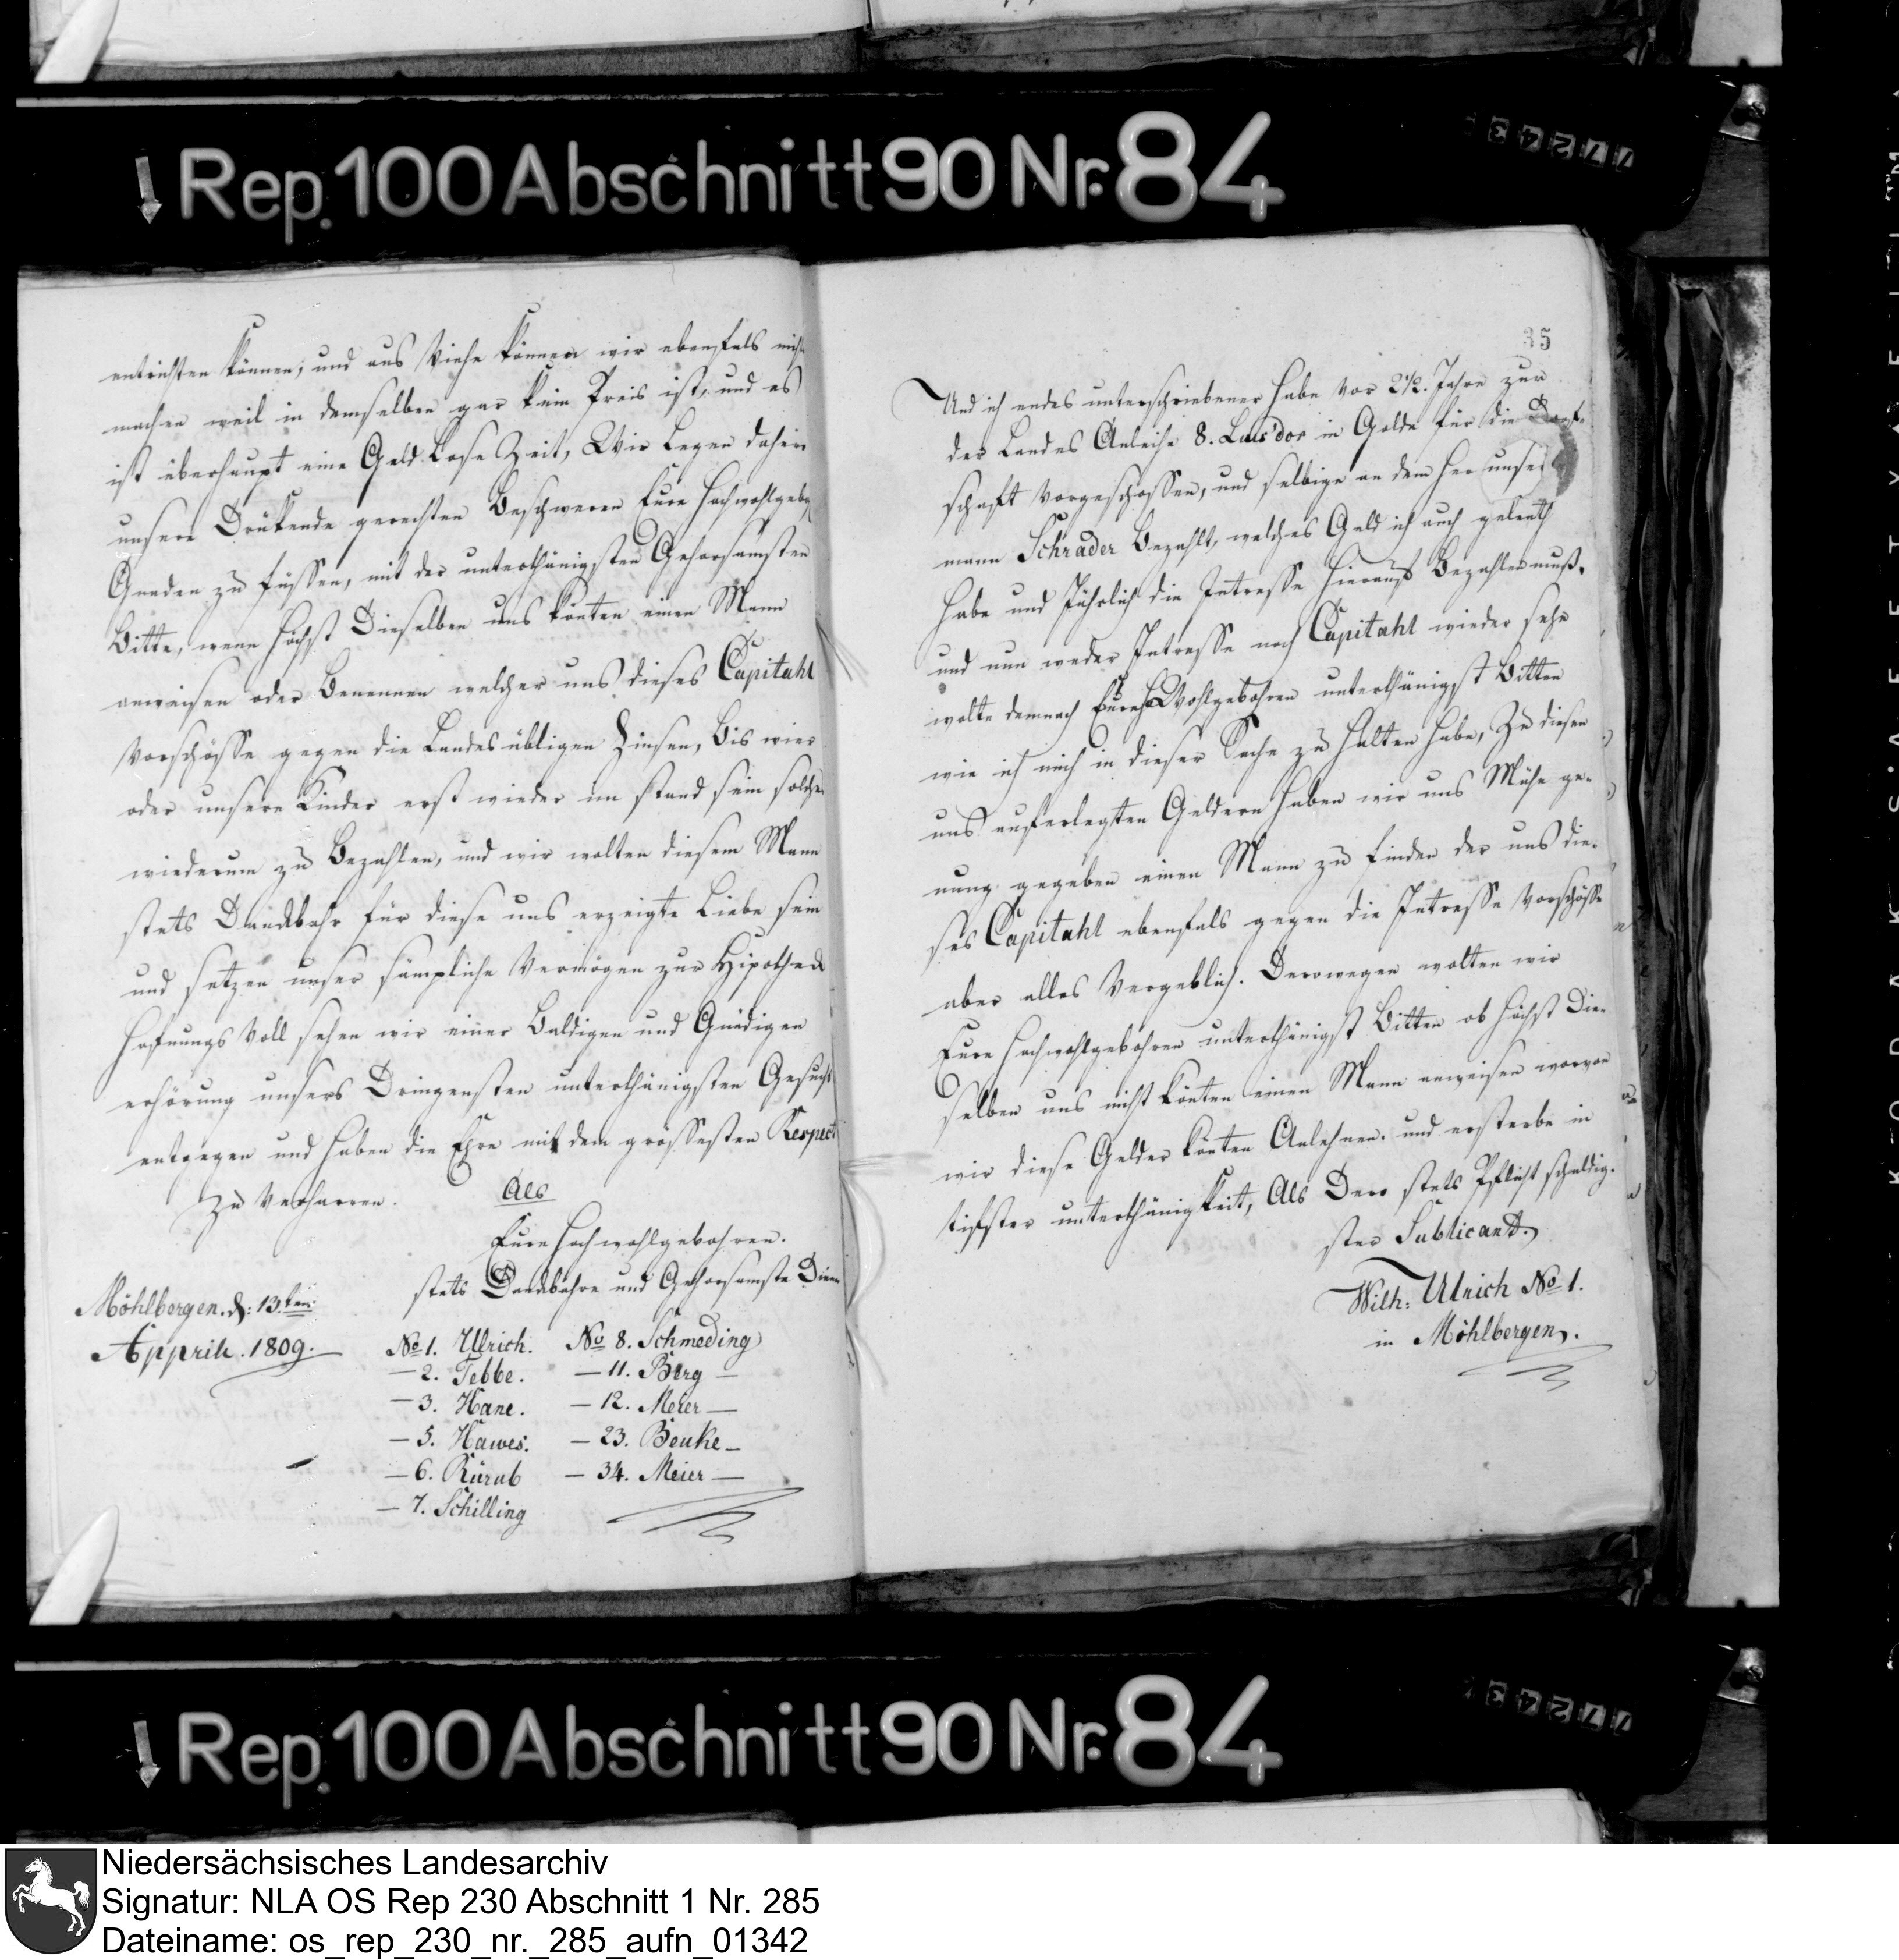 Rep. 100 Abschnitt 90 Nr. 84
77243
entrichten können; und aus Viehe können wir ebenfals nicht
machen weil in demselben gar kein Preis ist, und es
ist überhaupt eine Geld Lose Zeit, Wir Legen daher
unsere Drükende gerechten Beschweren Eure Hochwohlgeb
Gnaden zu füssen, mit der unterthänigsten Gehorsamsten
Bitte, wenn höchst Dieselben uns könten einen Mann
anweisen oder Benennen welcher uns dieses Capitahl
Vorschösse gegen die Landes übligen Zinsen, bis wier
oder unsere Kinder erst wieder im stand sein solches
wiederum zu Bezahlen, und wir wolten diesem Mann
stets Danckbahr für diese uns erzeigte Liebe sein
und setzen unser sämpliche Vermögen zur Hipotheck
Hofnungs Voll sehen wir einer Baldigen und Gnädigen
erhörung unsers Dringensten unterthänigsten Gesuchs
entgegen und haben die Ehre mit dem grössesten Respect
zu Verharren.
Als
Eure Hochwohlgebohren.
stets Danckbahre und Gehorsamste Diener
Möhlbergen. d: 13.ten
Apprih. 1809.
No 1. Ulrich. No 8. Schmeding
— 2. Tebbe. — 11. Berg —
— 3. Hane. — 12. Meier —
— 5. Hawes. — 23. Beuke —
— 6. Rürub — 34. Meier —
— 7. Schilling
35
Und ich endes unterschriebener habe vor 2 1/2. Jahre zur
der Landes Anleihe 8. Luis'dor in Golde für die Dorf-
schaft vorgeschossen, und selbige an dem Her
mann Schrader Bezahlt, welches Geld ich auch gelenth
habe und Jährlich die Intresse hieraus Bezahlen muß.
und nun weder Intresse noch Capitahl wieder sehe
wolte demnach Eure HochWohlgebohren unterthänigst Bitten
wie ich mich in dieser Sache zu halten habe, Zu diesen
uns auferlegten Geldern haben wir uns Mühe ge-
nung gegeben einen Mann zu finden der uns die-
ses Capitahl ebenfals gegen die Intresse Vorschösse
aber alles Vergeblich. Derowegen wolten wir
Eure Hochwohlgebohren unterthänigst Bitten ob höchst Die-
selben uns nicht könten einen Mann anweisen worvon
wir diese Gelder könten Anlehnen. und ersterbe in
tifster unterthänigkeit, Als Dero stets Pflicht schuldig-
ster Sublicant.
Wilh: Ulrich No 1.
in Möhlbergen.
Rep. 100 Abschnitt 90 Nr. 84
77243
Niedersächsisches Landesarchiv
Signatur: NLA OS Rep 230 Abschnitt 1 Nr. 285
Dateiname: os_rep_230_nr._285_aufn_01342